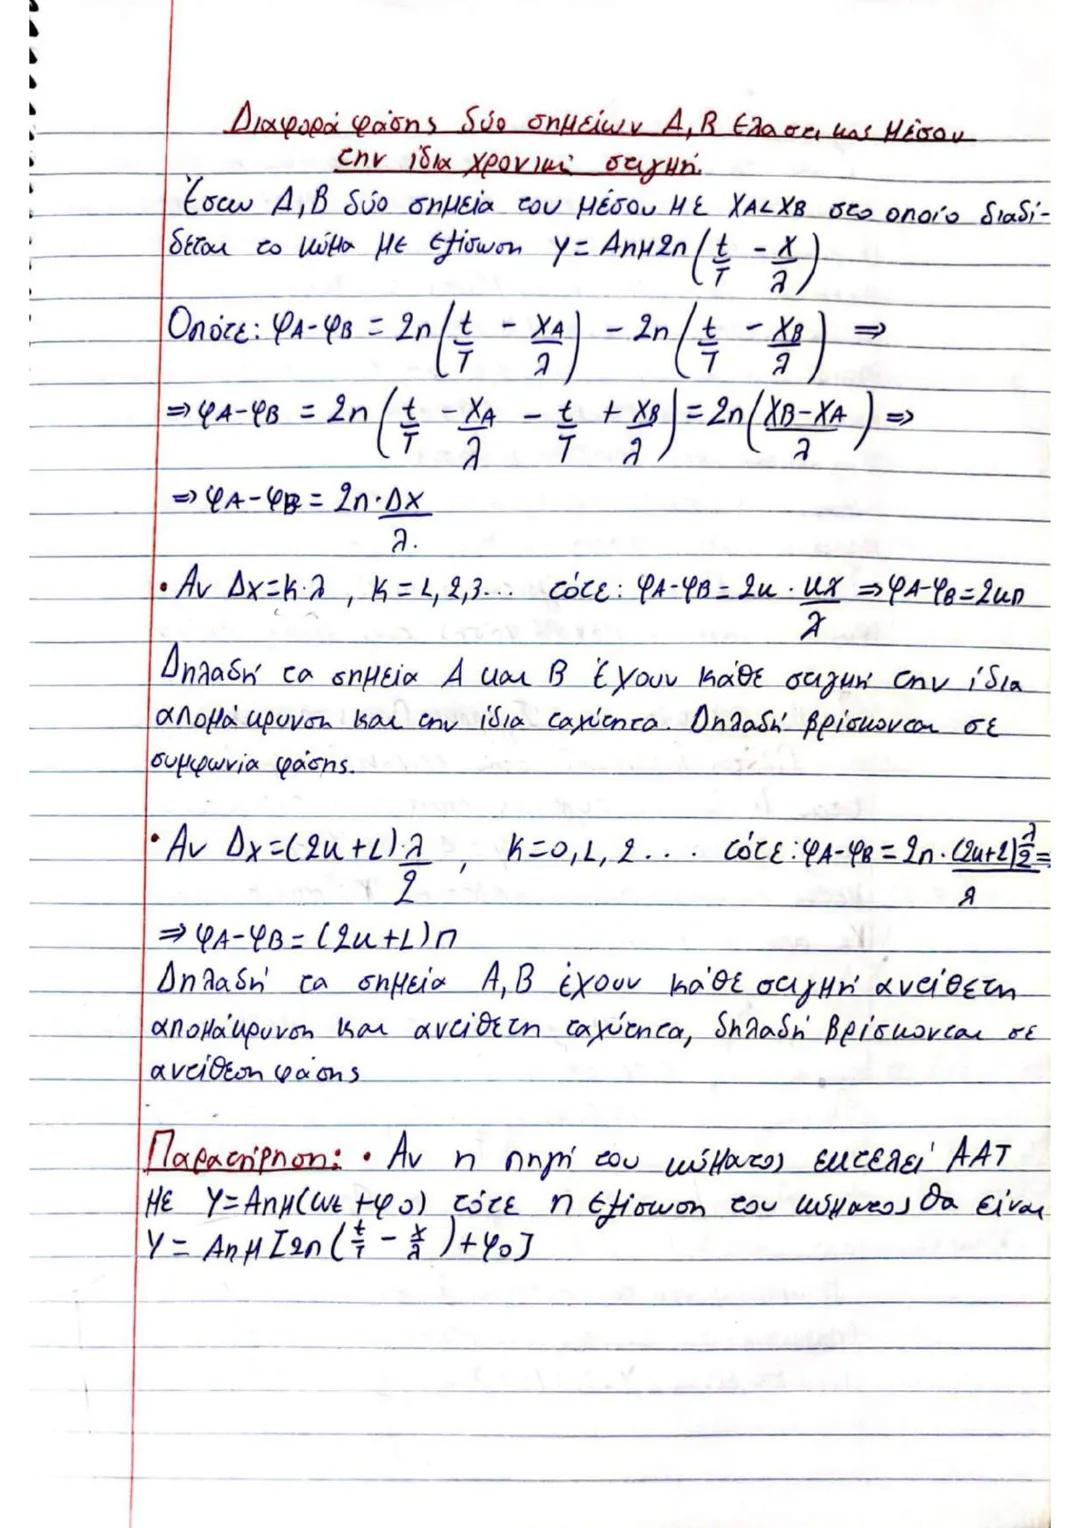 Διαφορά φάσης δύο σημείων Α, Β ελαστικού μέσου
την ίδια χρονική στιγμή.
Έστω Α, Β δύο σημεία του μέσου με XA<XB στο οποίο διαδί-
δεται το κύμα με εξίσωση y = Αημ2π(t/T - x/λ)
Οπότε: φA-φB = 2π(t/T - XA/λ) - 2π(t/T - XB/λ) ⇒
⇒ φA-φB = 2π(t/T - XA/λ - t/T + XB/λ) = 2π(XB-XA/λ) ⇒
⇒ φA-φB = 2π·Δx/λ.
• Αν Δx=κ·λ, κ=1,2,3... τότε: φA-φB=2π·κλ/λ ⇒ φA-φB=2κπ
Δηλαδή τα σημεία Α και Β έχουν κάθε στιγμή την ίδια
απομάκρυνση και την ίδια ταχύτητα. Δηλαδή βρίσκονται σε
συμφωνία φάσης.
• Αν Δx=(2κ+1)·λ/2, κ=0,1,2... τότε: φA-φB = 2π·(2κ+1)λ/2/λ =
⇒ φA-φB = (2κ+1)π
Δηλαδή τα σημεία Α, Β έχουν κάθε στιγμή αντίθετη
απομάκρυνση και αντίθετη ταχύτητα, δηλαδή βρίσκονται σε
αντίθεση φάσης
Παρατήρηση: • Αν η πηγή του κύματος εκτελεί ΑΑΤ
με y=Αημ(ωt+φ0) τότε η εξίσωση του κύματος θα είναι
y = Αημ[2π(t/T - x/λ)+φ0]